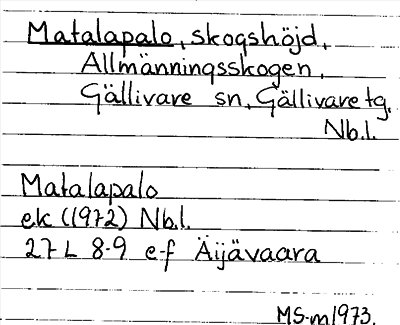 Matalapalo, skogshöjd,
Allmänningsskogen,
Gällivare sn, Gällivare tg.
Nb.l.
Matalapalo
ek (1972) Nb.l.
27 L 8-9 e-f Äijävaara
MS-m 1973.